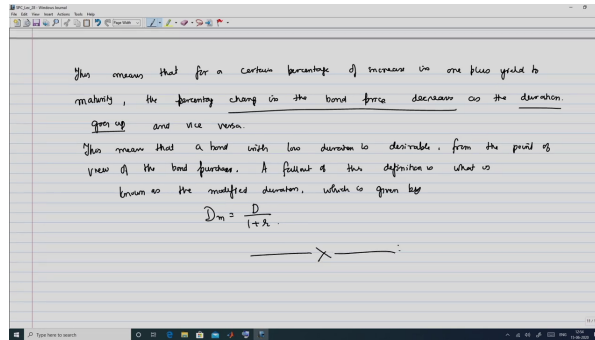 SPC_Lec_28 - Windows Journal
File Edit View Insert Actions Tools Help
Page Width
This means that for a certain percentage of increase in one plus yield to
maturity, the percentage change in the bond price decreases as the duration
goes up and vice versa.
This mean that a bond with low duration is desirable, from the point of
view of the bond purchaser. A fallout of this definition is what is
known as the modified duration, which is given by
Dm = D / 1+r .
Type here to search
ENG
12:54
15-06-2020